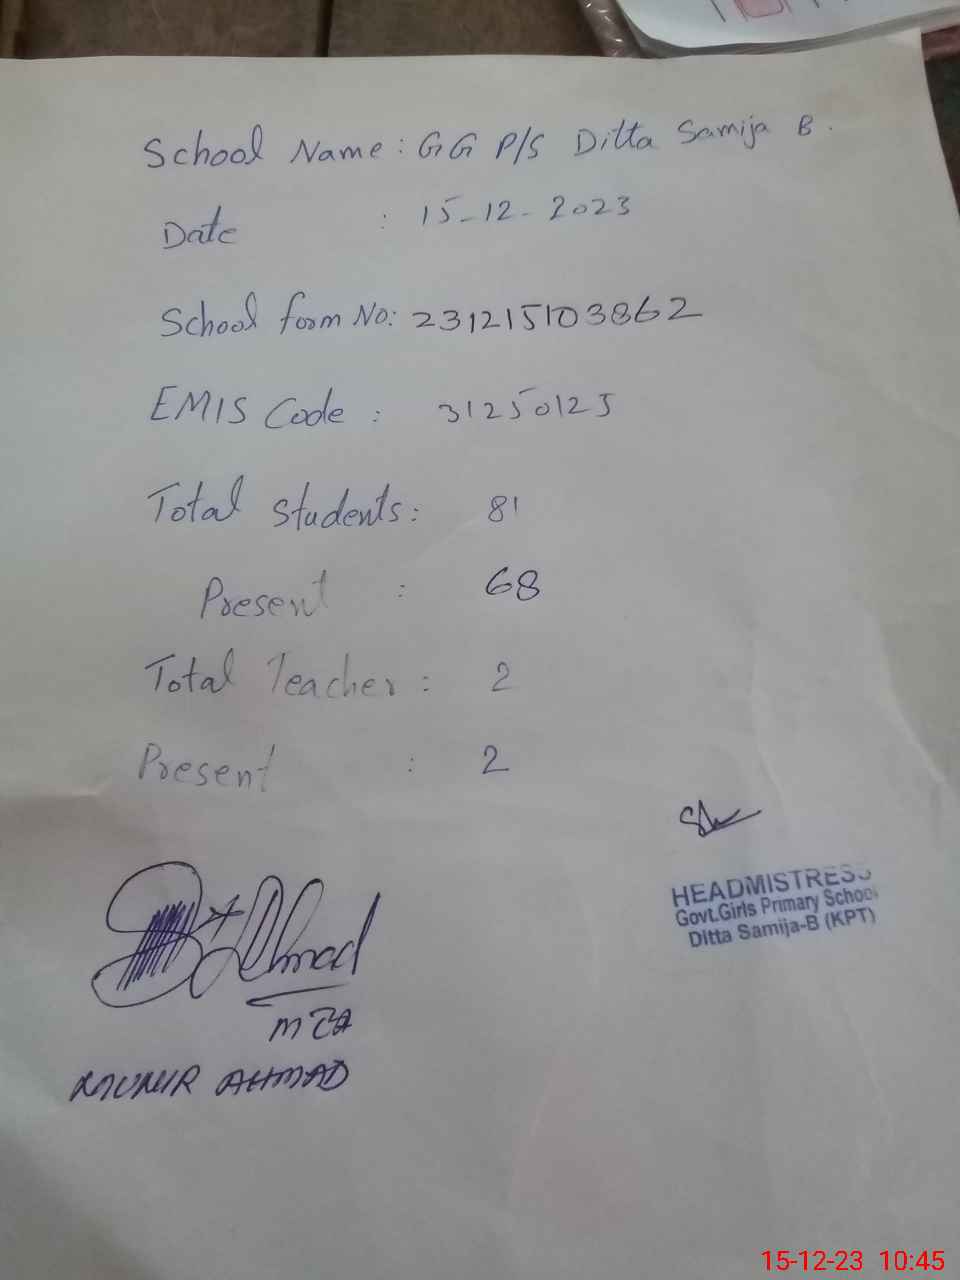 School Name: GG P/S Ditta Samija B.
Date : 15-12-2023
School form No: 231215103862
EMIS Code : 31250125
Total Students: 81
Present : 68
Total Teacher : 2
Present : 2
HEADMISTRESS
Govt.Girls Primary School
Ditta Samija-B (KPT)
Ahmad
MEA
MUNIR AHMAD
15-12-23 10:45